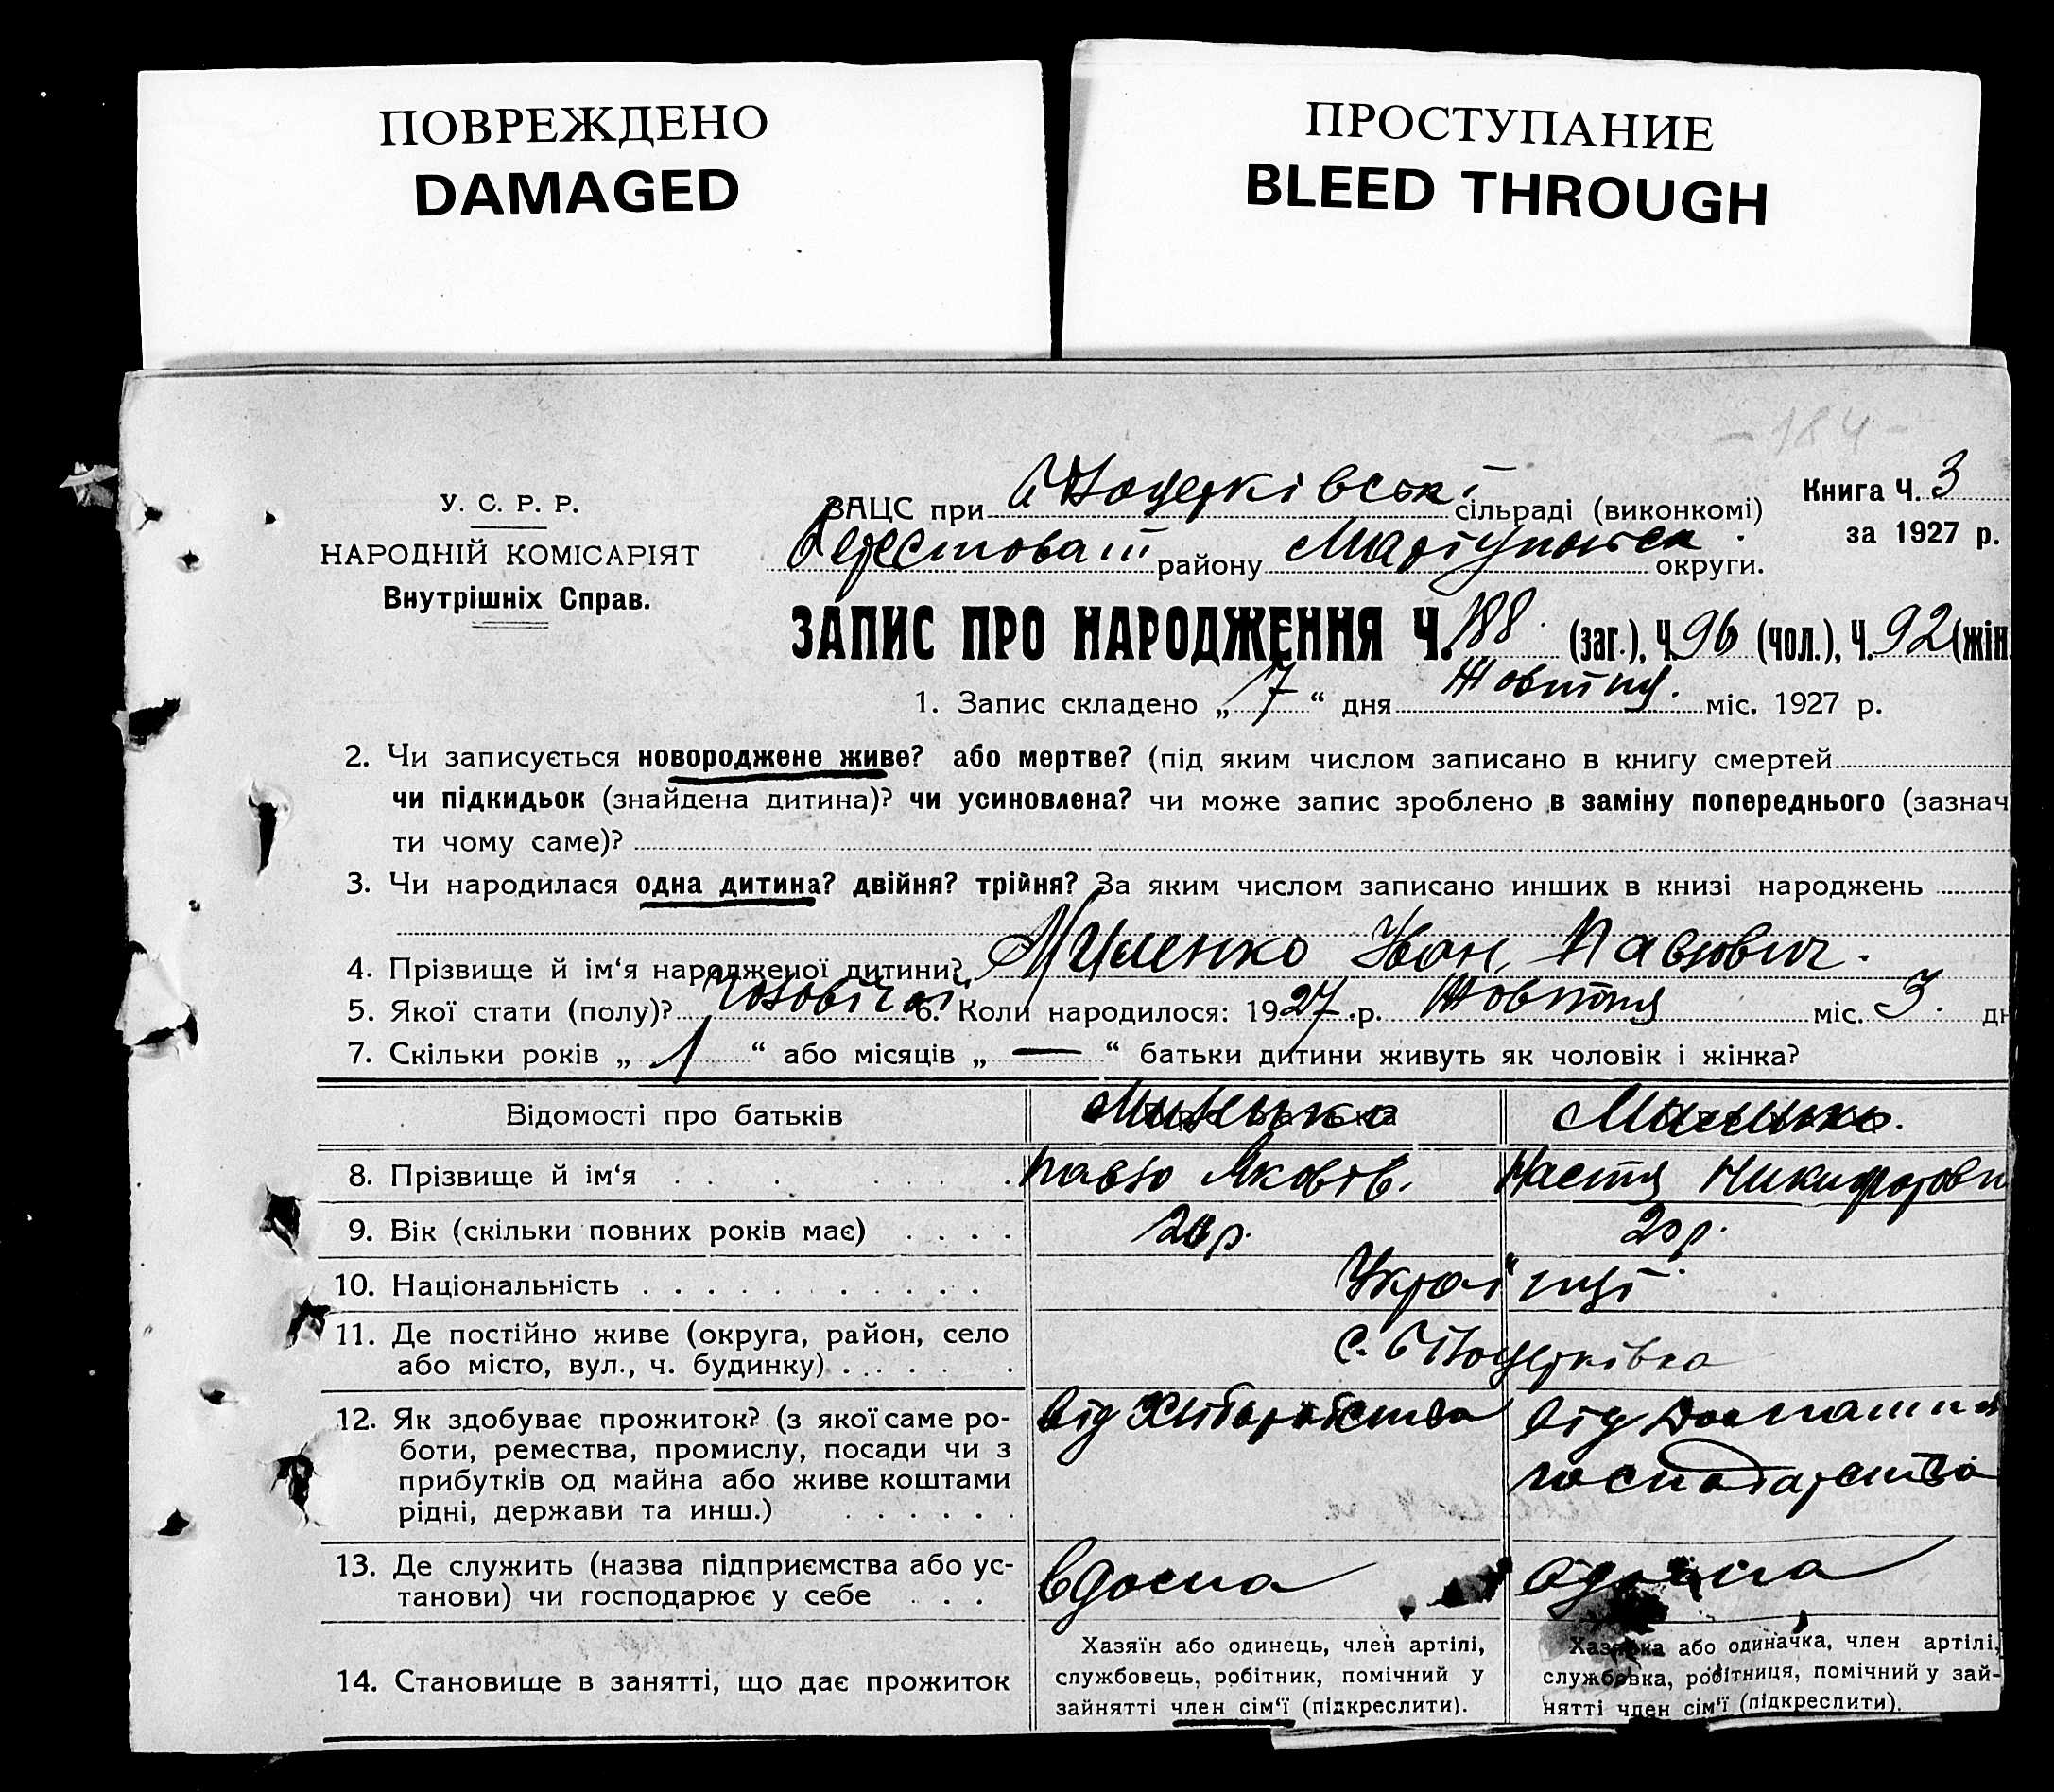 ПОВРЕЖДЕНО
DAMAGED
ПРОСТУПАНИЕ
BLEED THROUGH
- 184 -
У. С. Р. Р.
НАРОДНІЙ КОМІСАРІЯТ
Внутрішніх Справ.
ЗАЦС при сільраді (виконкомі)
Книга Ч. 3
за 1927 р.
району Маріупольск. округи.
ЗАПИС ПРО НАРОДЖЕННЯ Ч. 188. (заг.), Ч. 96 (чол.), Ч. 92 (жін
1. Запис складено „ 7 “ дня Жовтня. міс. 1927 р.
2. Чи записується новороджене живе? або мертве? (під яким числом записано в книгу смертей
чи підкидьок (знайдена дитина)? чи усиновлена? чи може запис зроблено в заміну попереднього (зазнач
ти чому саме)?
3. Чи народилася одна дитина? двійня? трійня? За яким числом записано инших в книзі народжень
4. Прізвище й ім‘я народженої дитини? Миленко Іван Павлович.
5. Якої стати (полу)? Чоловічої 6. Коли народилося: 1927 р. Жовтня міс. 3. дн
7. Скільки років „ 1 “ або місяців „ — “ батьки дитини живуть як чоловік і жінка?
Відомості про батьків
Миленко
Миленко.
8. Прізвище й ім‘я . . . . . . . Павло Яковів. Настя Никифоровн
9. Вік (скільки повних років має) . . . . 20 р. 20 р.
10. Національність . . . . . . . . . . . Українці
11. Де постійно живе (округа, район, село
або місто, вул., ч. будинку) . . . . . . с.
12. Як здобуває прожиток? (з якої саме ро-
боти, ремества, промислу, посади чи з
прибутків од майна або живе коштами
рідні, держави та инш.) . . . . . .
від Хліборобства
від Домашнього
господарства
13. Де служить (назва підприємства або ус-
танови) чи господарює у себе . . .
вдома
вдома
14. Становище в занятті, що дає прожиток
Хазяїн або одинець, член артілі,
службовець, робітник, помічний у
зайнятті член сім‘ї (підкреслити).
Хазяйка або одиначка, член артілі,
службовка, робітниця, помічний у зай-
нятті член сім‘ї (підкреслити).